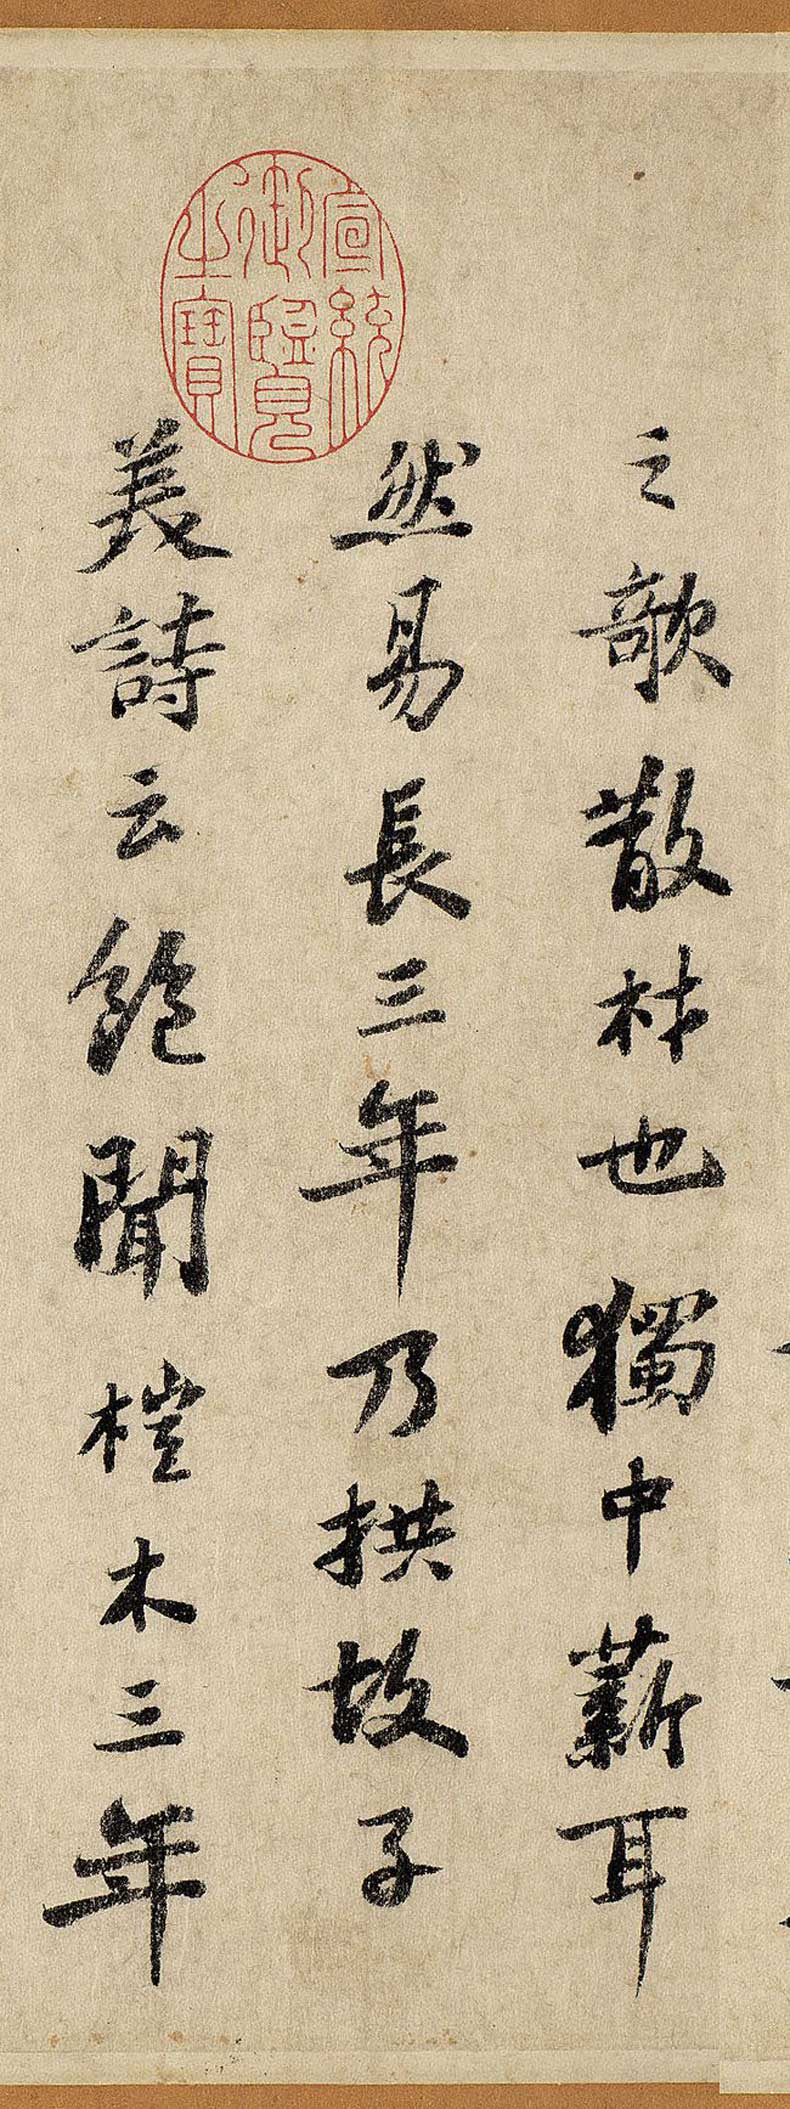 宣統
御覽
之寶
之欹散材也獨中薪耳
然易長三年乃拱故子
美詩云飽聞榿木三年